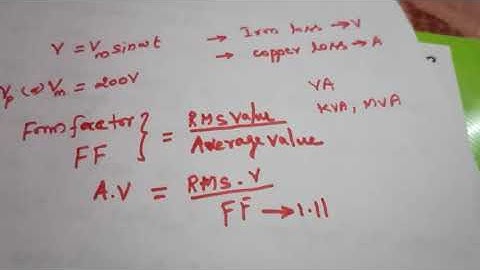 V = Vm sinωt → Iron loss → V
→ copper loss → A
Vp (or) Vm = 200V
VA
KVA, MVA
Form factor } = RMS Value
FF Average Value
A.V = RMS.V
FF → 1.11